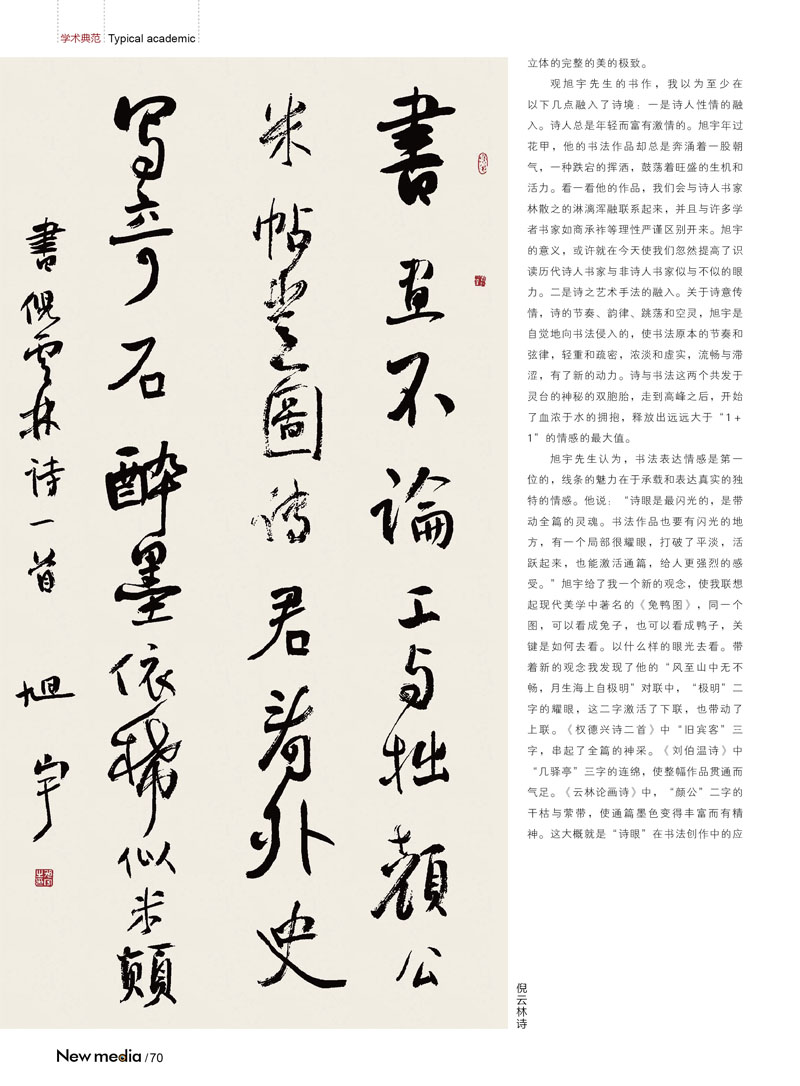 学术典范 Typical academic
書畫不論工与拙顏公
米帖豈圖傳君看外史
寫奇石醉墨依稀似米顛
書倪雲林诗一首 旭宇
倪云林诗
立体的完整的美的极致。
观旭宇先生的书作，我以为至少在
以下几点融入了诗境：一是诗人性情的融
入。诗人总是年轻而富有激情的。旭宇年过
花甲，他的书法作品却总是奔涌着一股朝
气，一种跌宕的挥洒，鼓荡着旺盛的生机和
活力。看一看他的作品，我们会与诗人书家
林散之的淋漓浑融联系起来，并且与许多学
者书家如商承祚等理性严谨区别开来。旭宇
的意义，或许就在今天使我们忽然提高了识
读历代诗人书家与非诗人书家似与不似的眼
力。二是诗之艺术手法的融入。关于诗意传
情，诗的节奏、韵律、跳荡和空灵，旭宇是
自觉地向书法侵入的，使书法原本的节奏和
弦律，轻重和疏密，浓淡和虚实，流畅与滞
涩，有了新的动力。诗与书法这两个共发于
灵台的神秘的双胞胎，走到高峰之后，开始
了血浓于水的拥抱，释放出远远大于“1＋
1”的情感的最大值。
旭宇先生认为，书法表达情感是第一
位的，线条的魅力在于承载和表达真实的独
特的情感。他说：“诗眼是最闪光的，是带
动全篇的灵魂。书法作品也要有闪光的地
方，有一个局部很耀眼，打破了平淡，活
跃起来，也能激活通篇，给人更强烈的感
受。”旭宇给了我一个新的观念，使我联想
起现代美学中著名的《兔鸭图》，同一个
图，可以看成兔子，也可以看成鸭子，关
键是如何去看。以什么样的眼光去看。带
着新的观念我发现了他的“风至山中无不
畅，月生海上自极明”对联中，“极明”二
字的耀眼，这二字激活了下联，也带动了
上联。《权德兴诗二首》中“旧宾客”三
字，串起了全篇的神采。《刘伯温诗》中
“几驿亭”三字的连绵，使整幅作品贯通而
气足。《云林论画诗》中，“颜公”二字的
干枯与萦带，使通篇墨色变得丰富而有精
神。这大概就是“诗眼”在书法创作中的应
New media /70